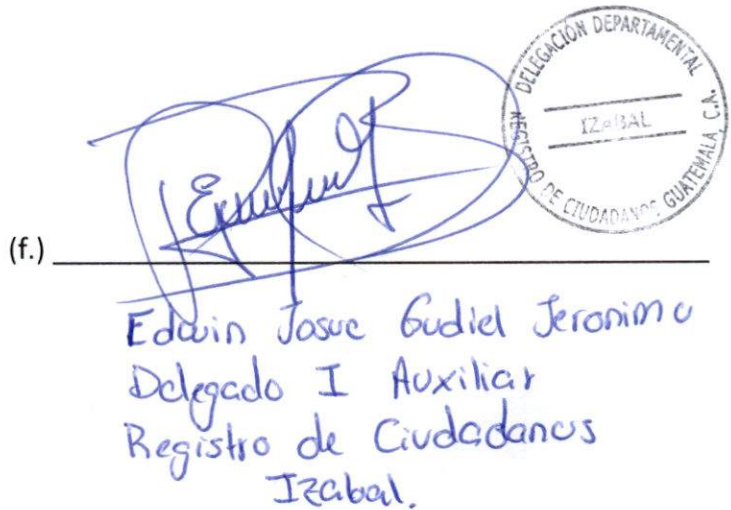 DELEGACIÓN DEPARTAMENTAL
IZABAL
REGISTRO DE CIUDADANOS GUATEMALA, C.A.
(f.)
Edwin Josue Gudiel Jeronimo
Delegado I Auxiliar
Registro de Ciudadanos
Izabal.